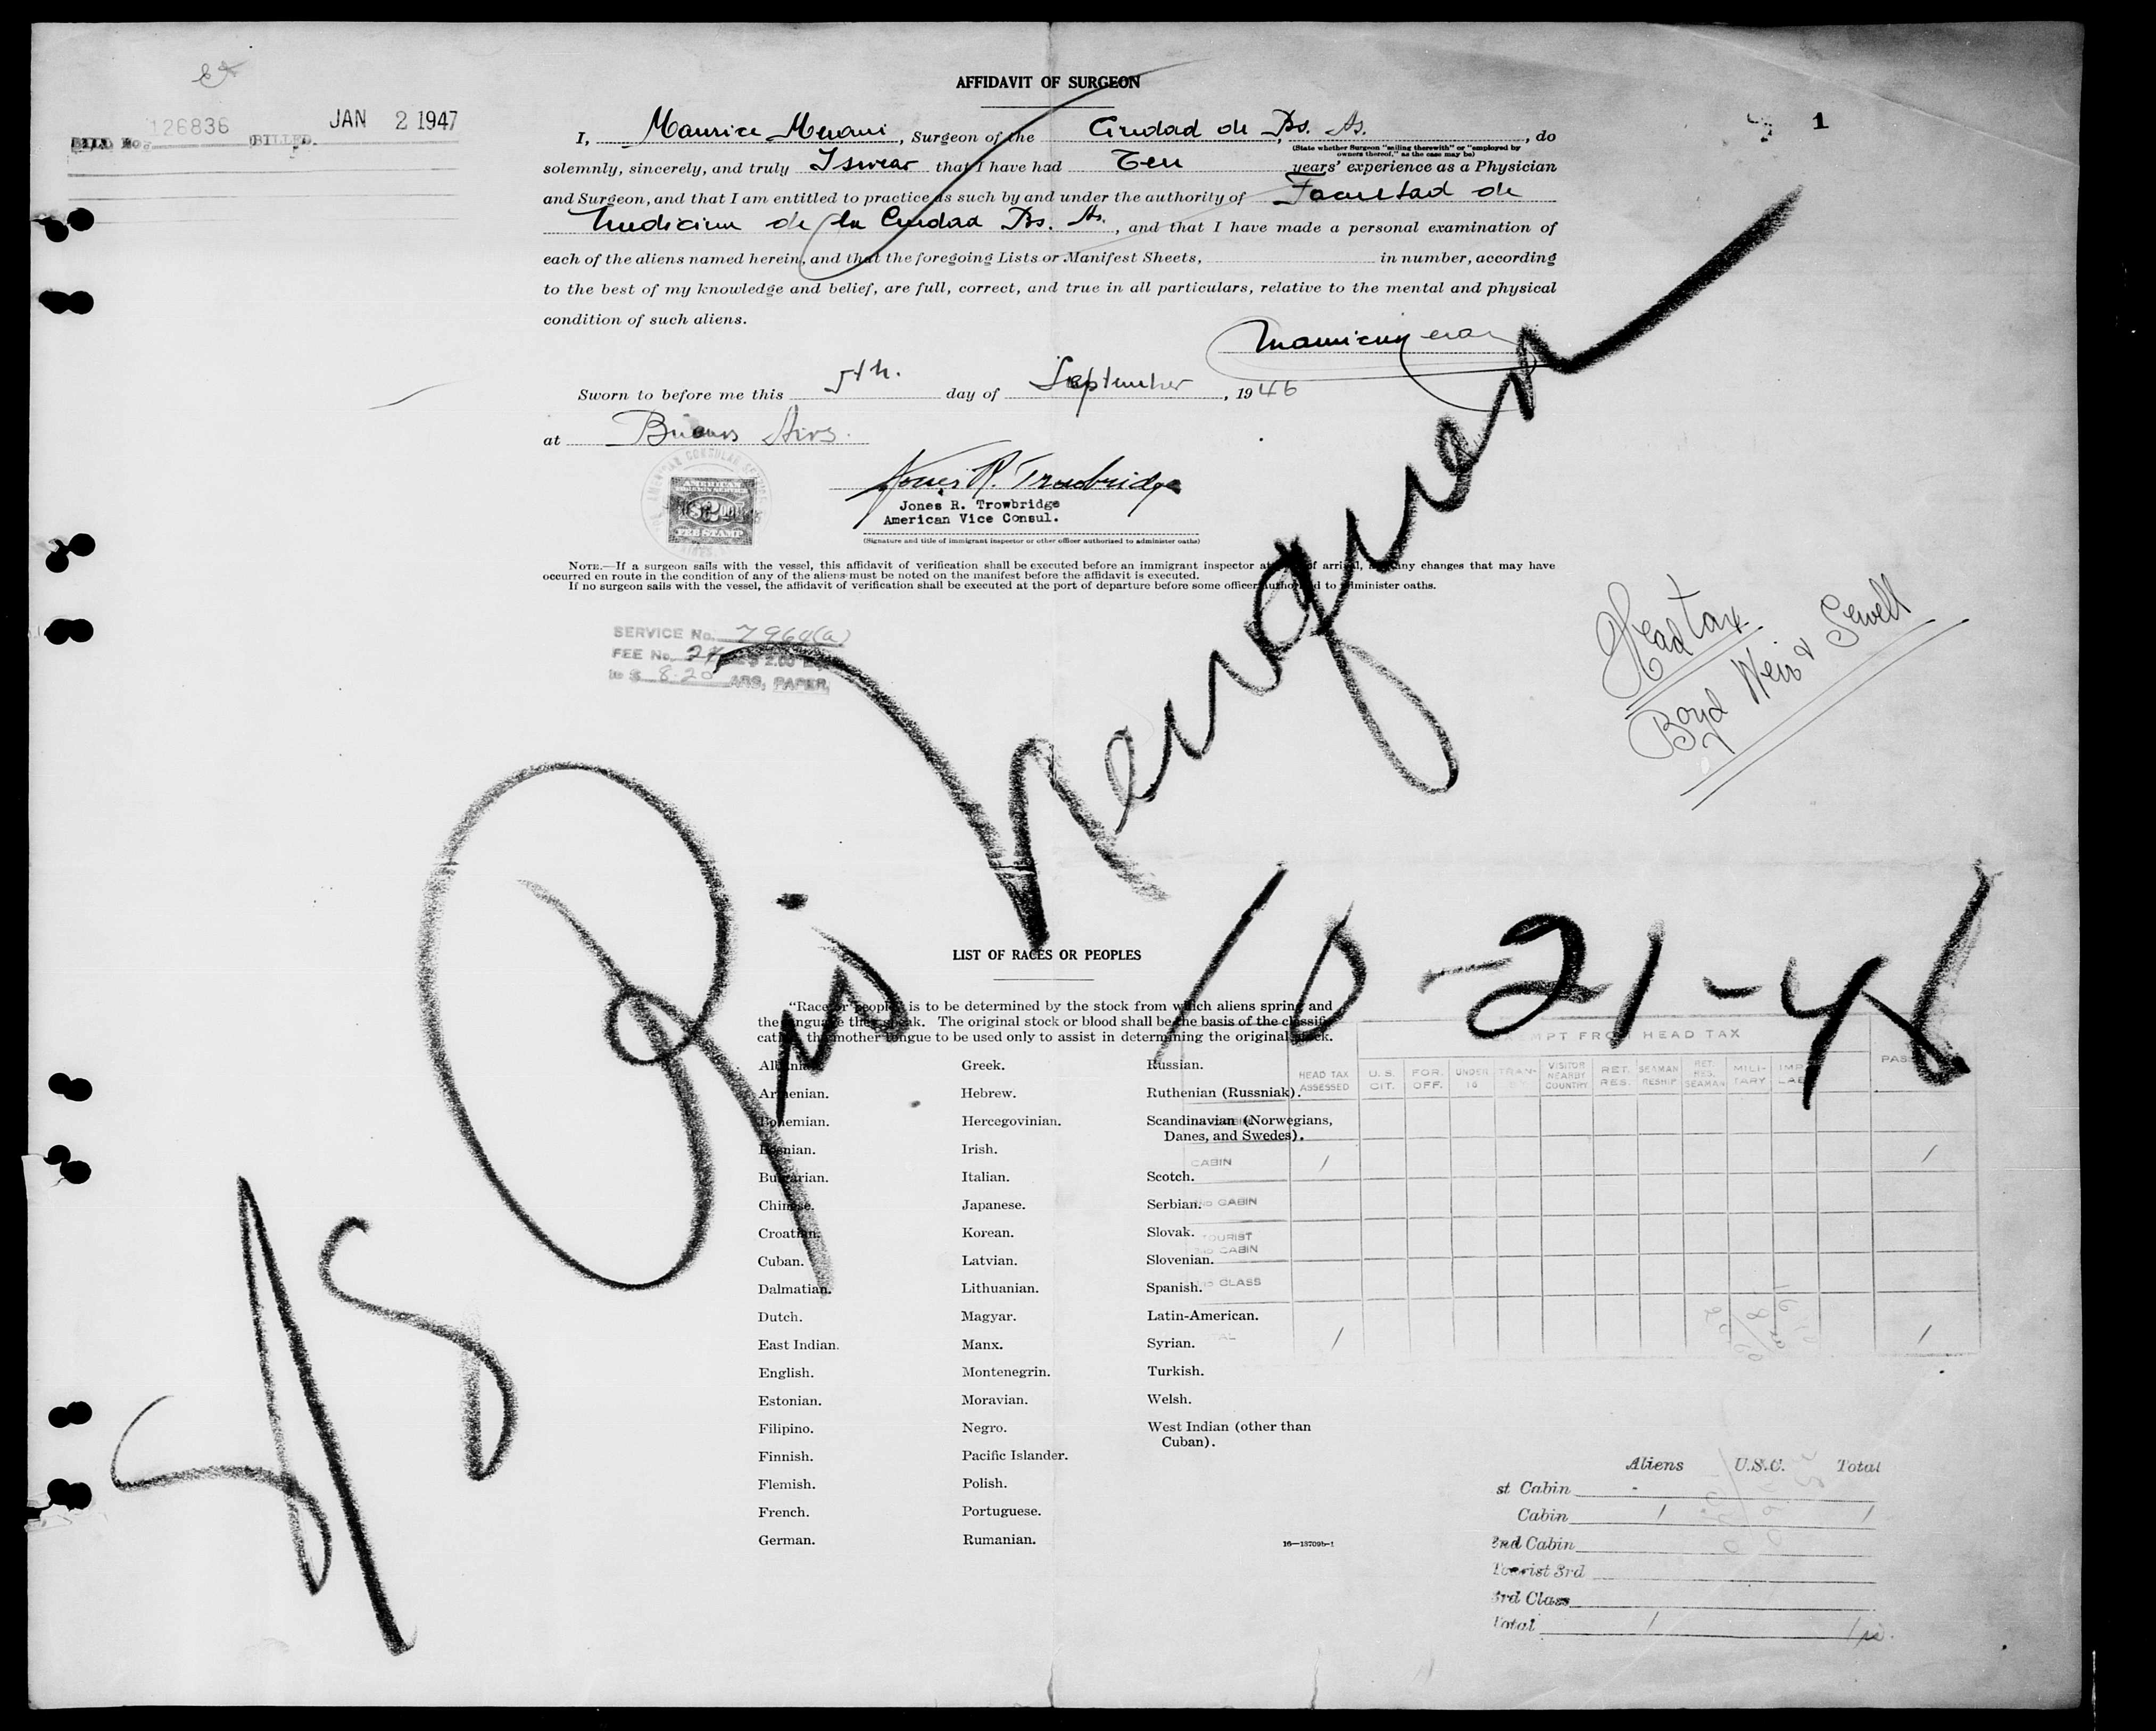 BILL No. 126836 BILLED JAN 2 1947
1
AFFIDAVIT OF SURGEON
I, Maurice , Surgeon of the Ciudad de Bs. As., do
(State whether Surgeon "sailing therewith" or "employed by
owners thereof," as the case may be)
solemnly, sincerely, and truly I swear that I have had Ten years' experience as a Physician
and Surgeon, and that I am entitled to practice as such by and under the authority of Facultad de
Medicina de la Ciudad Bs. As., and that I have made a personal examination of
each of the aliens named herein, and that the foregoing Lists or Manifest Sheets, in number, according
to the best of my knowledge and belief, are full, correct, and true in all particulars, relative to the mental and physical
condition of such aliens.
Sworn to before me this 5th. day of September, 1946
at Buenos Aires.
AMERICAN CONSULAR SERVICE
AMERICAN
FOREIGN SERVICE
$2.00
FEE STAMP
Jones R. Trowbridge
Jones R. Trowbridge
American Vice Consul.
(Signature and title of immigrant inspector or other officer authorized to administer oaths)
NOTE.—If a surgeon sails with the vessel, this affidavit of verification shall be executed before an immigrant inspector at of arrival, any changes that may have
occurred en route in the condition of any of the aliens must be noted on the manifest before the affidavit is executed.
If no surgeon sails with the vessel, the affidavit of verification shall be executed at the port of departure before some officer authorized to administer oaths.
SERVICE No. 7964(a)
FEE No. 24 $2.00
to $ 8.20 ARG. PAPER
Head tax
Boyd Weir & Sewell
SS Rio Neuquen
10-21-46
LIST OF RACES OR PEOPLES
"Race or people" is to be determined by the stock from which aliens spring and
the language they speak. The original stock or blood shall be the basis of the classifi-
cation, the mother tongue to be used only to assist in determining the original stock.
Albanian.
Armenian.
Bohemian.
Bosnian.
Bulgarian.
Chinese.
Croatian.
Cuban.
Dalmatian.
Dutch.
East Indian.
English.
Estonian.
Filipino.
Finnish.
Flemish.
French.
German.
Greek.
Hebrew.
Hercegovinian.
Irish.
Italian.
Japanese.
Korean.
Latvian.
Lithuanian.
Magyar.
Manx.
Montenegrin.
Moravian.
Negro.
Pacific Islander.
Polish.
Portuguese.
Rumanian.
Russian.
Ruthenian (Russniak).
Scandinavian (Norwegians,
Danes, and Swedes).
Scotch.
Serbian.
Slovak.
Slovenian.
Spanish.
Latin-American.
Syrian.
Turkish.
Welsh.
West Indian (other than
Cuban).
16—13709b-1
EXEMPT FROM HEAD TAX
HEAD TAX ASSESSED U.S. CIT. FOR. OFF. UNDER 16 TRAN- VISITOR NEARBY COUNTRY RET. RES. SEAMAN RESHIP RET. RES. SEAMAN MILI- TARY IMP LAB PASS
CABIN 1 1
2ND CABIN
TOURIST
3RD CABIN
3RD CLASS
TOTAL 1 1
Aliens U.S.C. Total
1st Cabin -
Cabin 1 1
2nd Cabin
Tourist 3rd
3rd Class
Total 1 1